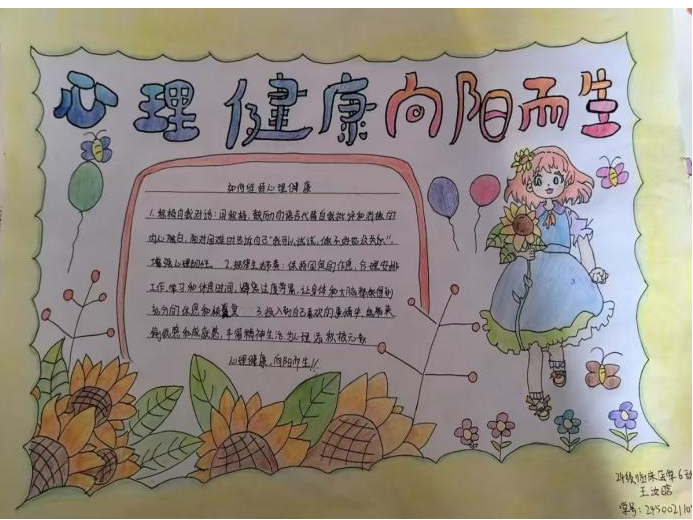 心理健康向阳而生
如何维持心理健康
1.积极自我对话:用积极、鼓励的语言代替自我批评和消极的
内心独白,面对困难时告诉自己"我可以试试,做不好也没关系",
增强心理韧性。 2.规律生活节奏:保持固定的作息,合理安排
工作、学习和休息时间,避免过度劳累,让身体和大脑都能得到
充分的休息和恢复 3.投入到自己喜欢的事情中,能带来
愉悦感和成就感,丰富精神生活为心理注积极元素
心理健康,向阳而生!!
24级临床医学6班
王汝
学号:2450021